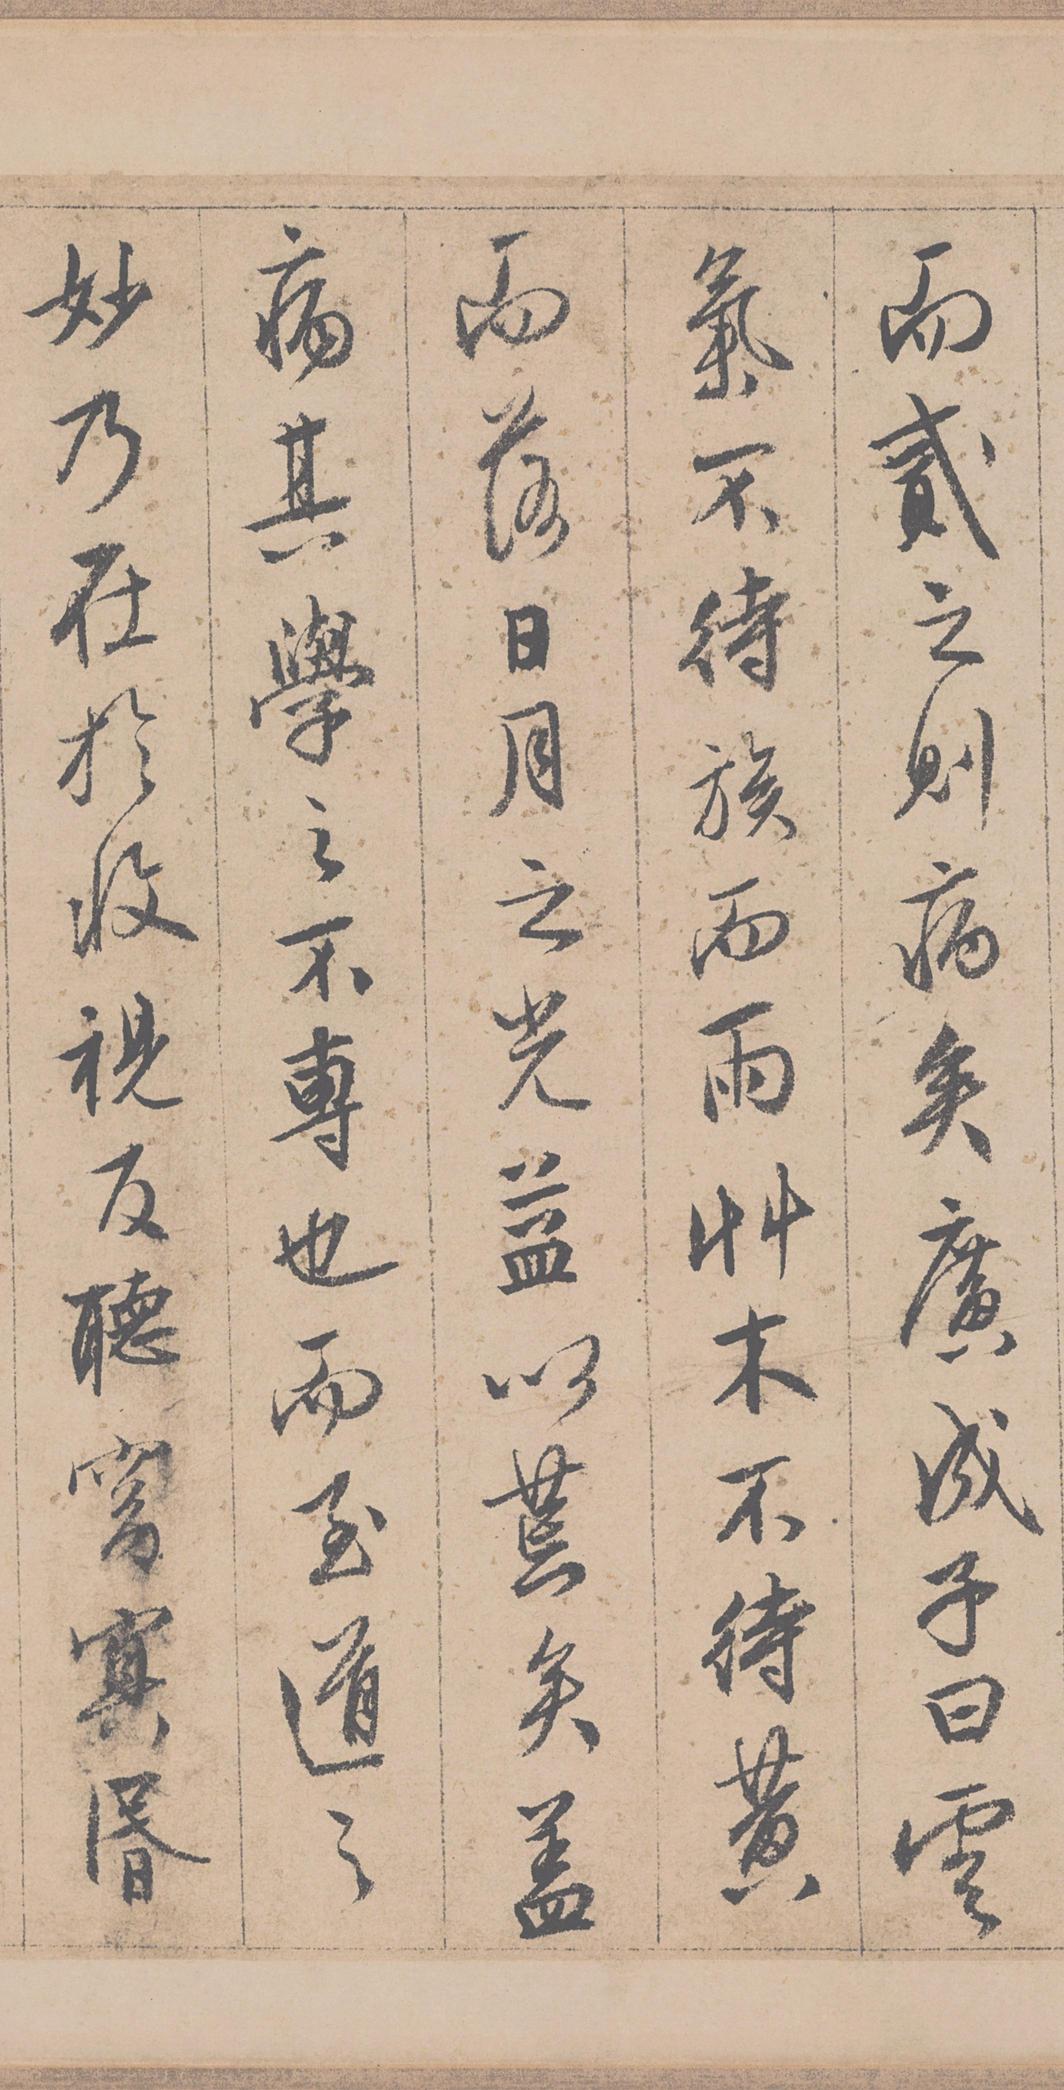 而貳之則病矣廣成子曰雲
氣不待族而雨艸木不待黃
而落日月之光益以荒矣蓋
病其學之不專也而至道之
妙乃在於收視反聽窅冥昬